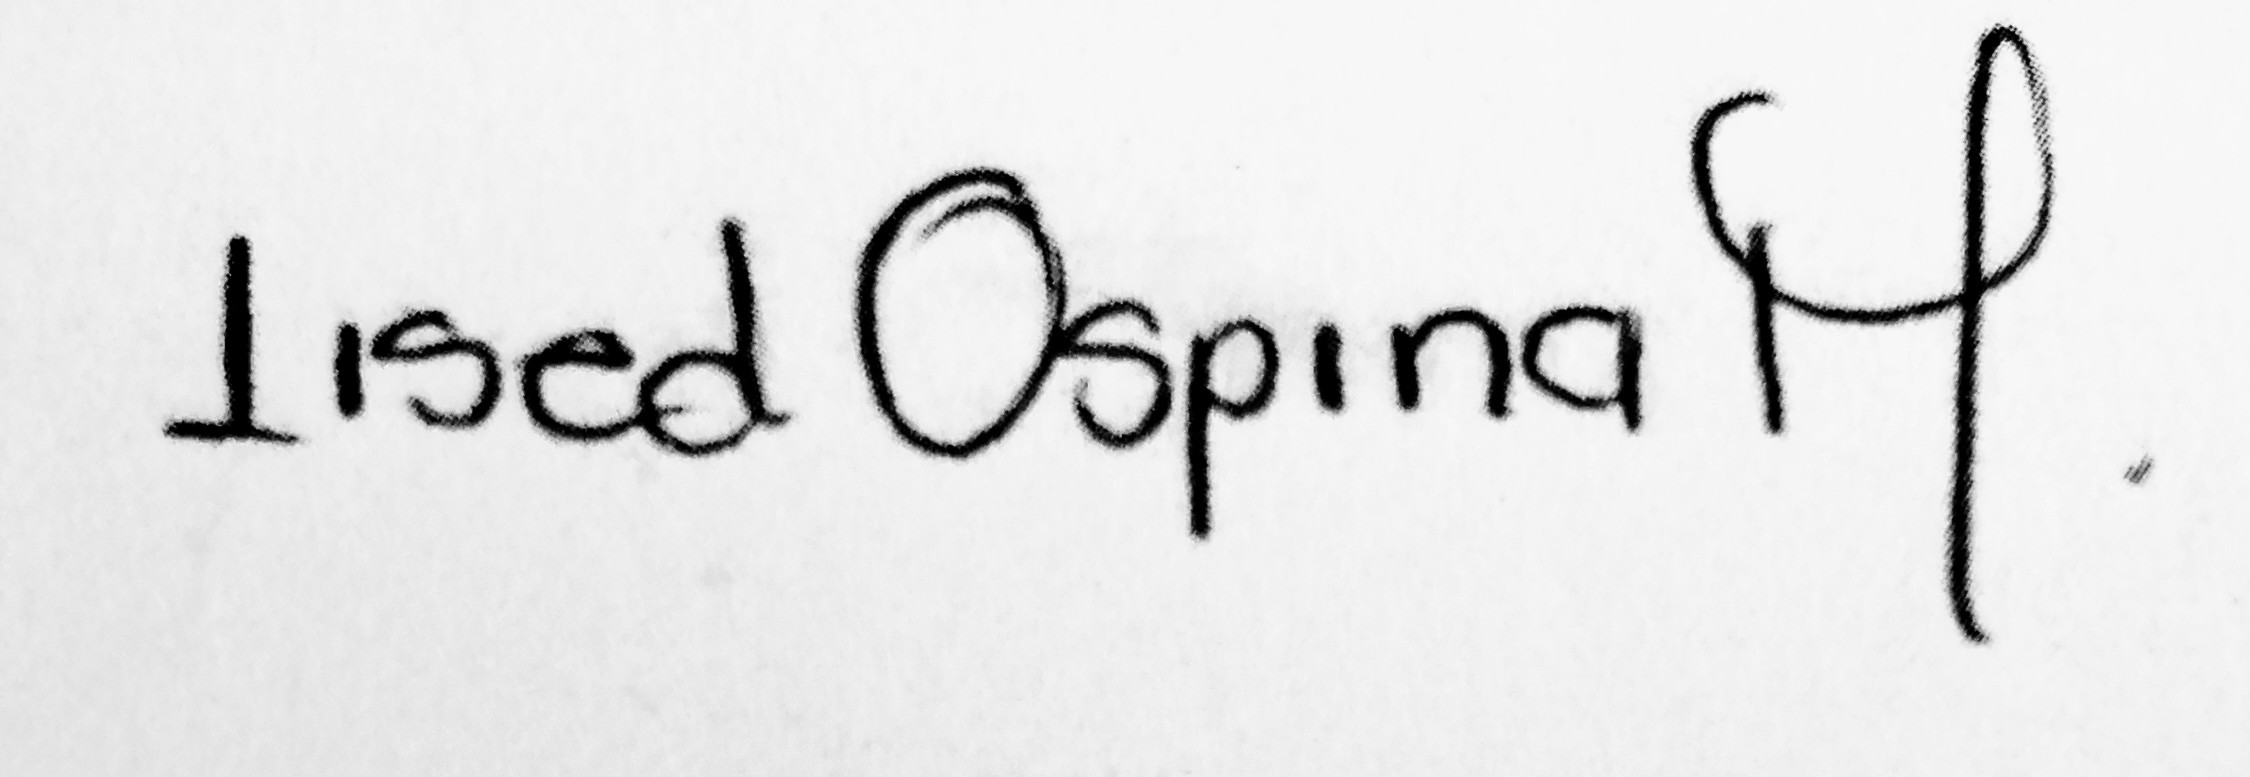 Lised Ospina M.